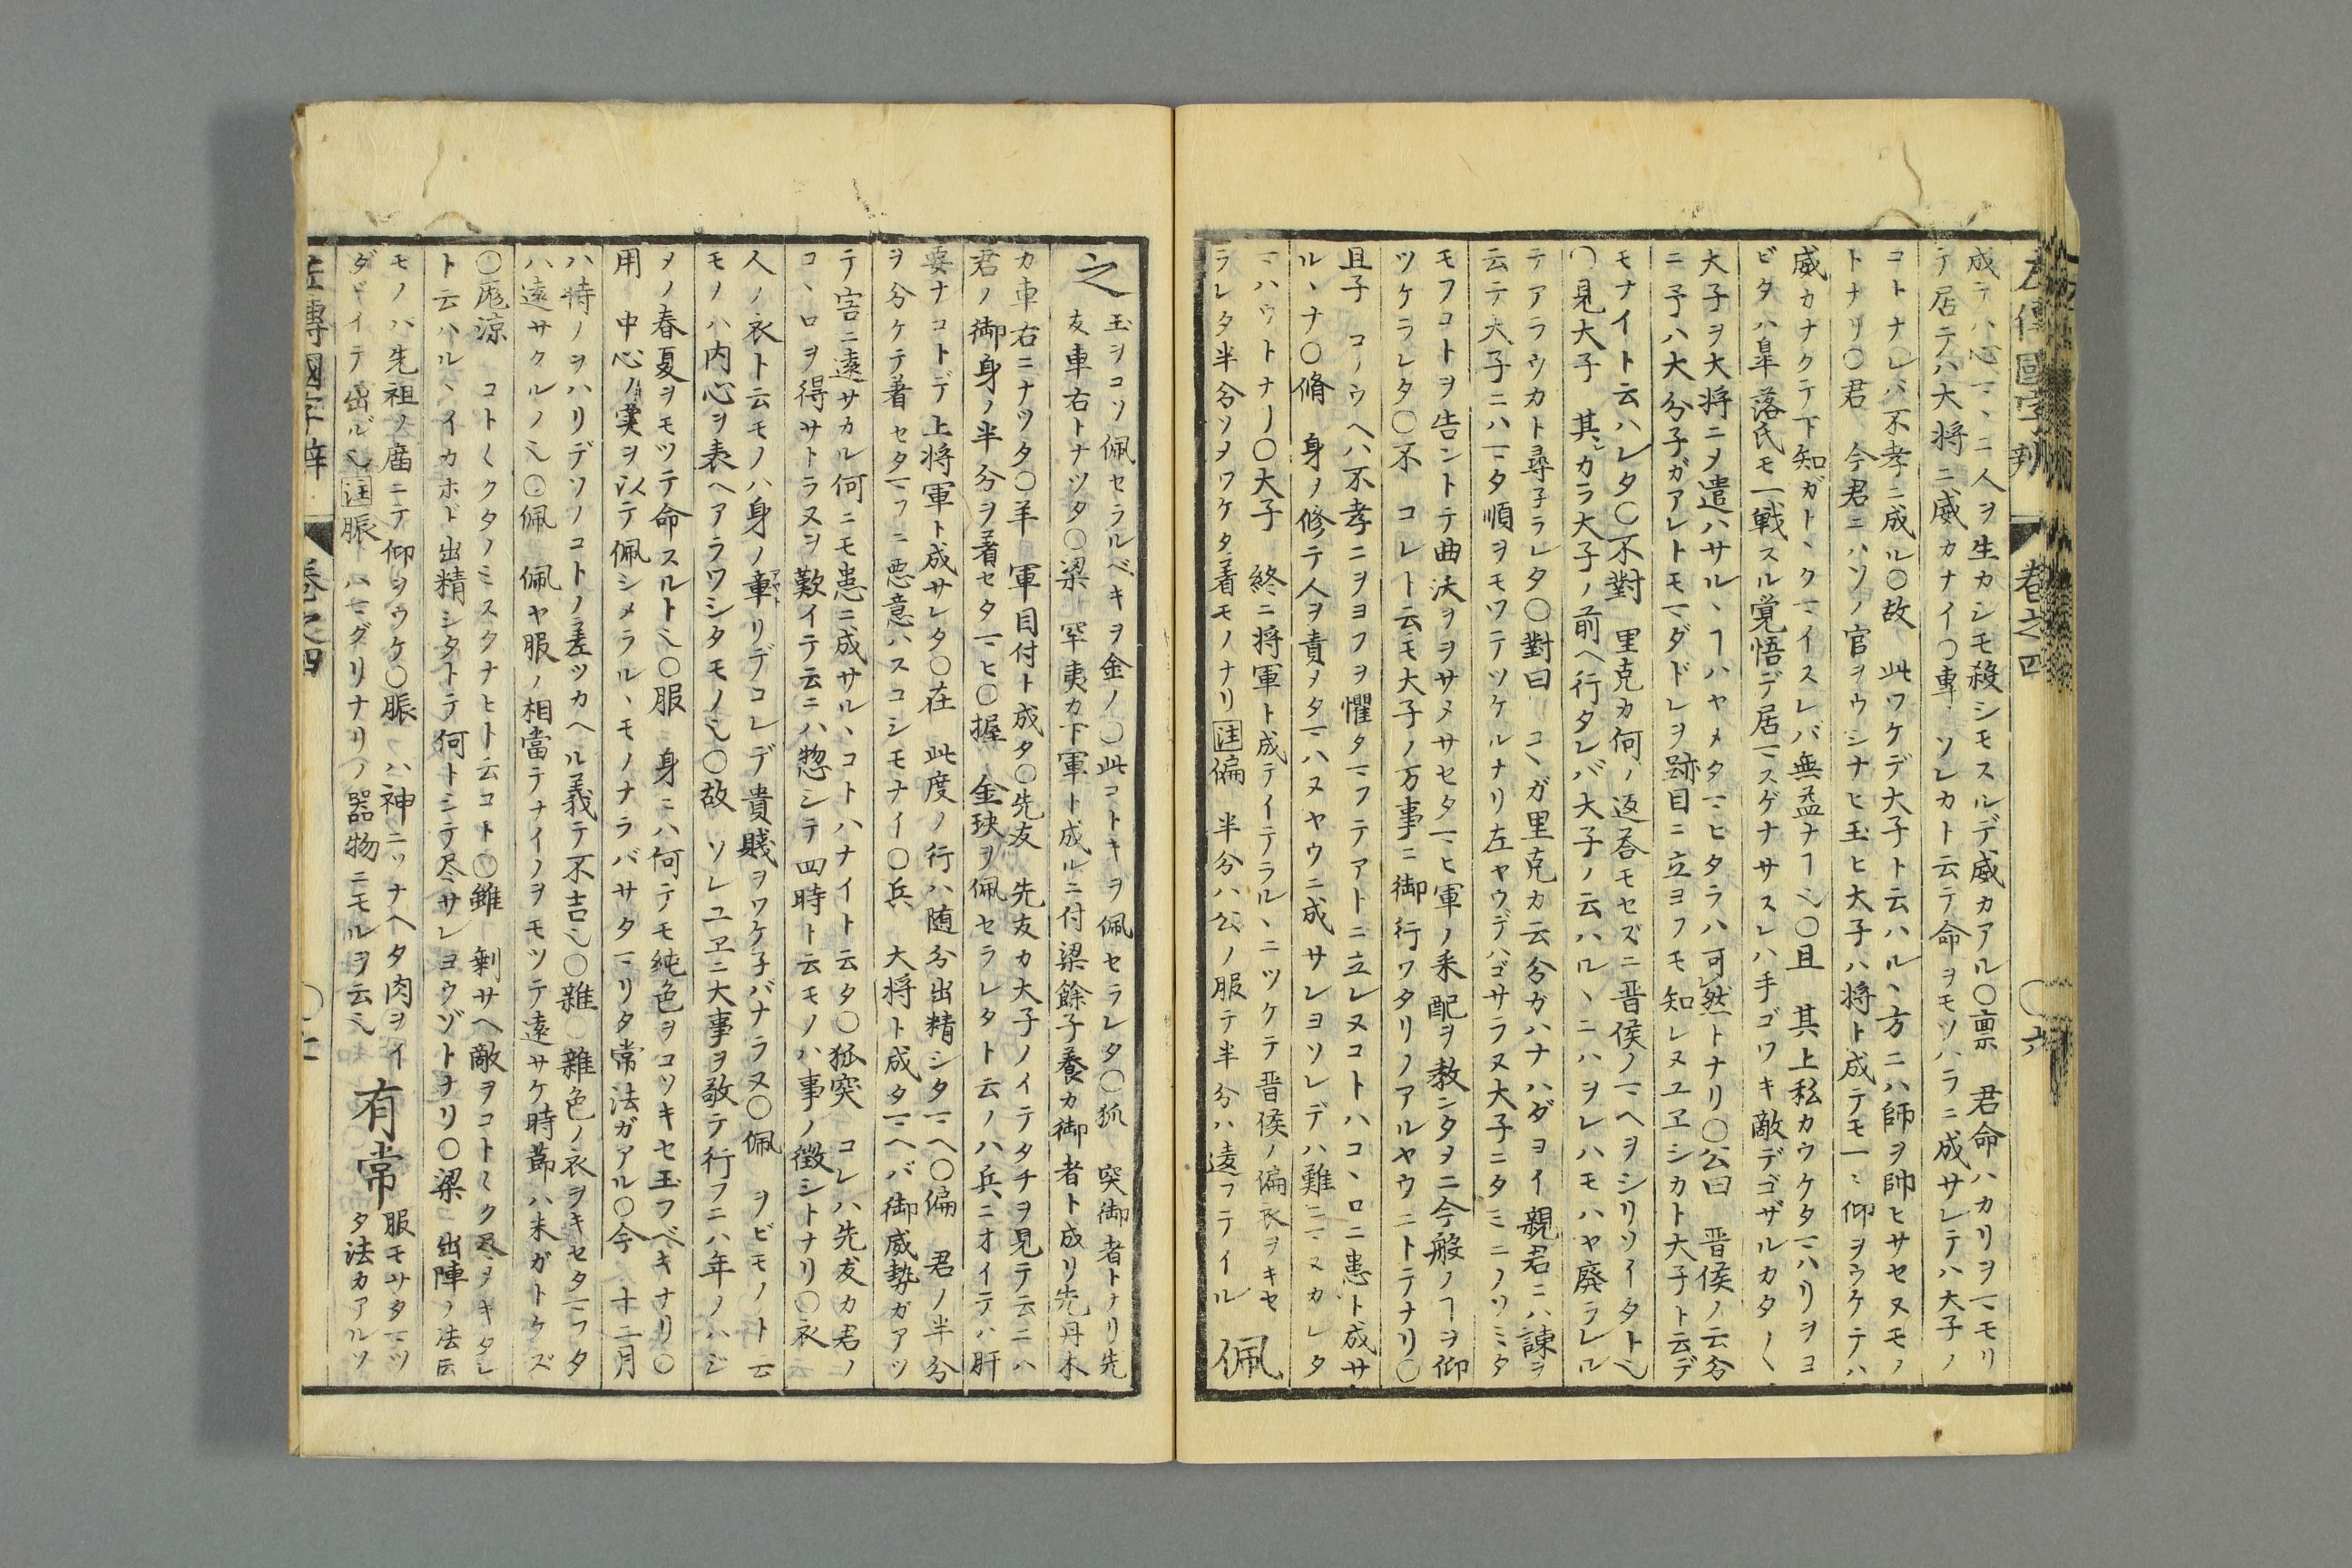 左傳國字辨 巻之四 〇六
成テハ心マヽニ人ヲ生カシモ殺シモスルデ威カアル〇禀 君命ハカリヲマモリ
テ居テハ大将ニ威カナイ〇專 ソレカト云テ命ヲモツハラニ成サレテハ大子ノ
コトナレバ不孝ニ成ル〇故 此ワケデ大子ト云ハルヽ方ニハ師ヲ帥ヒサセヌモノ
トナリ〇君 今君ニハソノ官ヲウシナヒ玉ヒ大子ハ将ト成テモ一ニ仰ヲウケテハ
威カナクテ下知ガトヽクマイスレバ無益ナヿ也〇且 其上私カウケタマハリヲヨ
ビタハ皐落氏モ一戦スル覚悟デ居マスゲナサスレハ手ゴワキ敵デゴザルカタ〱
大子ヲ大将ニヲ遣ハサルヽヿハヤメタマヒタラハ可然トナリ〇公曰 晋侯ノ云分
ニ予ハ大分子ガアレトモマダドレヲ跡目ニ立ヨフモ知レヌユヱシカト大子ト云デ
モナイト云ハレタ〇不對 里克カ何ノ返荅モセズニ晋侯ノマヘヲシリソイタト也
〇見大子 其レカラ大子ノ前ヘ行タレバ大子ノ云ハルヽニハヲレハモハヤ廃ラレル
テアラウカト尋子ラレタ〇對曰 コヽガ里克カ云分ガハナハダヨイ親君ニハ諌ヲ
云テ大子ニハマタ順ヲモワテツケルナリ左ヤウデハゴサラヌ大子ニタミニノソミタ
モフコトヲ告ントテ曲沃ヲヲサメサセタマヒ軍ノ釆配ヲ教ンタヲニ今般ノヿヲ仰
ツケラレタ〇不 コレト云モ大子ノ万事ニ御行ワタリノアルヤウニトテナリ〇
且子 コノウヘハ不孝ニヲヨフヲ懼タマフテアトニ立レヌコトハコヽロニ患ト成サ
ルヽナ〇脩 身ノ修テ人ヲ責ノタマハヌヤウニ成サレヨソレデハ難ニマヌカレタ
マハウトナリ〇大子 終ニ将軍ト成テイテラルヽニツケテ晋侯ノ偏衣ヲキセ
ラレタ半分ソヲワケタ着モノナリ 注偏 半分ハ公ノ服テ半分ハ遠フテイル 佩
之 玉ヲコソ佩セラルベキヲ金ノ〇此コトキヲ佩セラレタ〇狐 突御者トナリ先
友車右トナツタ〇梁 罕夷カ下軍ト成ルニ付梁餘子養カ御者ト成リ先丹木
カ車右ニナツタ〇羊 軍目付ト成タ〇先友 先友カ大子ノイテタチヲ見テ云ニハ
君ノ御身ノ半分ヲ着セタマヒ〇握 金玦ヲ佩セラレタト云ノハ兵ニオイテハ肝
要ナコトデ上将軍ト成サレタ〇在 此度ノ行ハ随分出精シタマヘ〇偏 君ノ半分
ヲ分ケテ着セタマフニ悪意ハスコシモナイ〇兵 大将ト成タマヘバ御威勢ガアツ
テ害ニ遠サカル何ニモ患ニ成サルヽコトハナイト云タ〇狐突 コレハ先友カ君ノ
コヽロヲ得サトラヌヲ歎イテ云ニハ惣シテ四時ト云モノハ事ノ徴シトナリ〇衣
人ノ衣ト云モノハ身ノ章リデコレデ貴賤ヲワケ子バナラヌ〇佩 ヲビモノト云
モノハ内心ヲ表ヘアラワシタモノ也〇故 ソレユヱニ大事ヲ敬テ行フニハ年ノハジ
ヲノ春夏ヲモツテ命スルト也〇服 身ニハ何テモ純色ヲコソキセ玉フベキナリ〇
用 中心ノ実ヲ以テ佩シメラルヽモノナラバサタマリタ常法ガアル〇今 十二月
ハ時ノヲハリデソノコトノ差ツカヘル義テ不吉也〇雜 雜色ノ衣ヲキセタマフタ
ハ遠サクルノ也〇佩 佩ヤ服ノ相當テナイノヲモツテ遠サケ時節ハ末ガトケズ
〇尨涼 コト〱クタノミスクナヒト云コト〇雖 剰サヘ敵ヲコト〱ク尽ヲキタレ
ト云ハルヽイカホド出精シタトテ何トシテ尽サレヨウゾトナリ〇梁 出陣ノ法云
モノハ先祖ノ庿ニテ仰ヲウケ〇脤 ハ神ニソナヘタ肉ヲイ 有常 服モサタマツ
ダヾイテ出ル也 注脤 ハマグリナリノ器物ニモルヲ云也 タ法カアルソ
左傳國字辨 巻之四